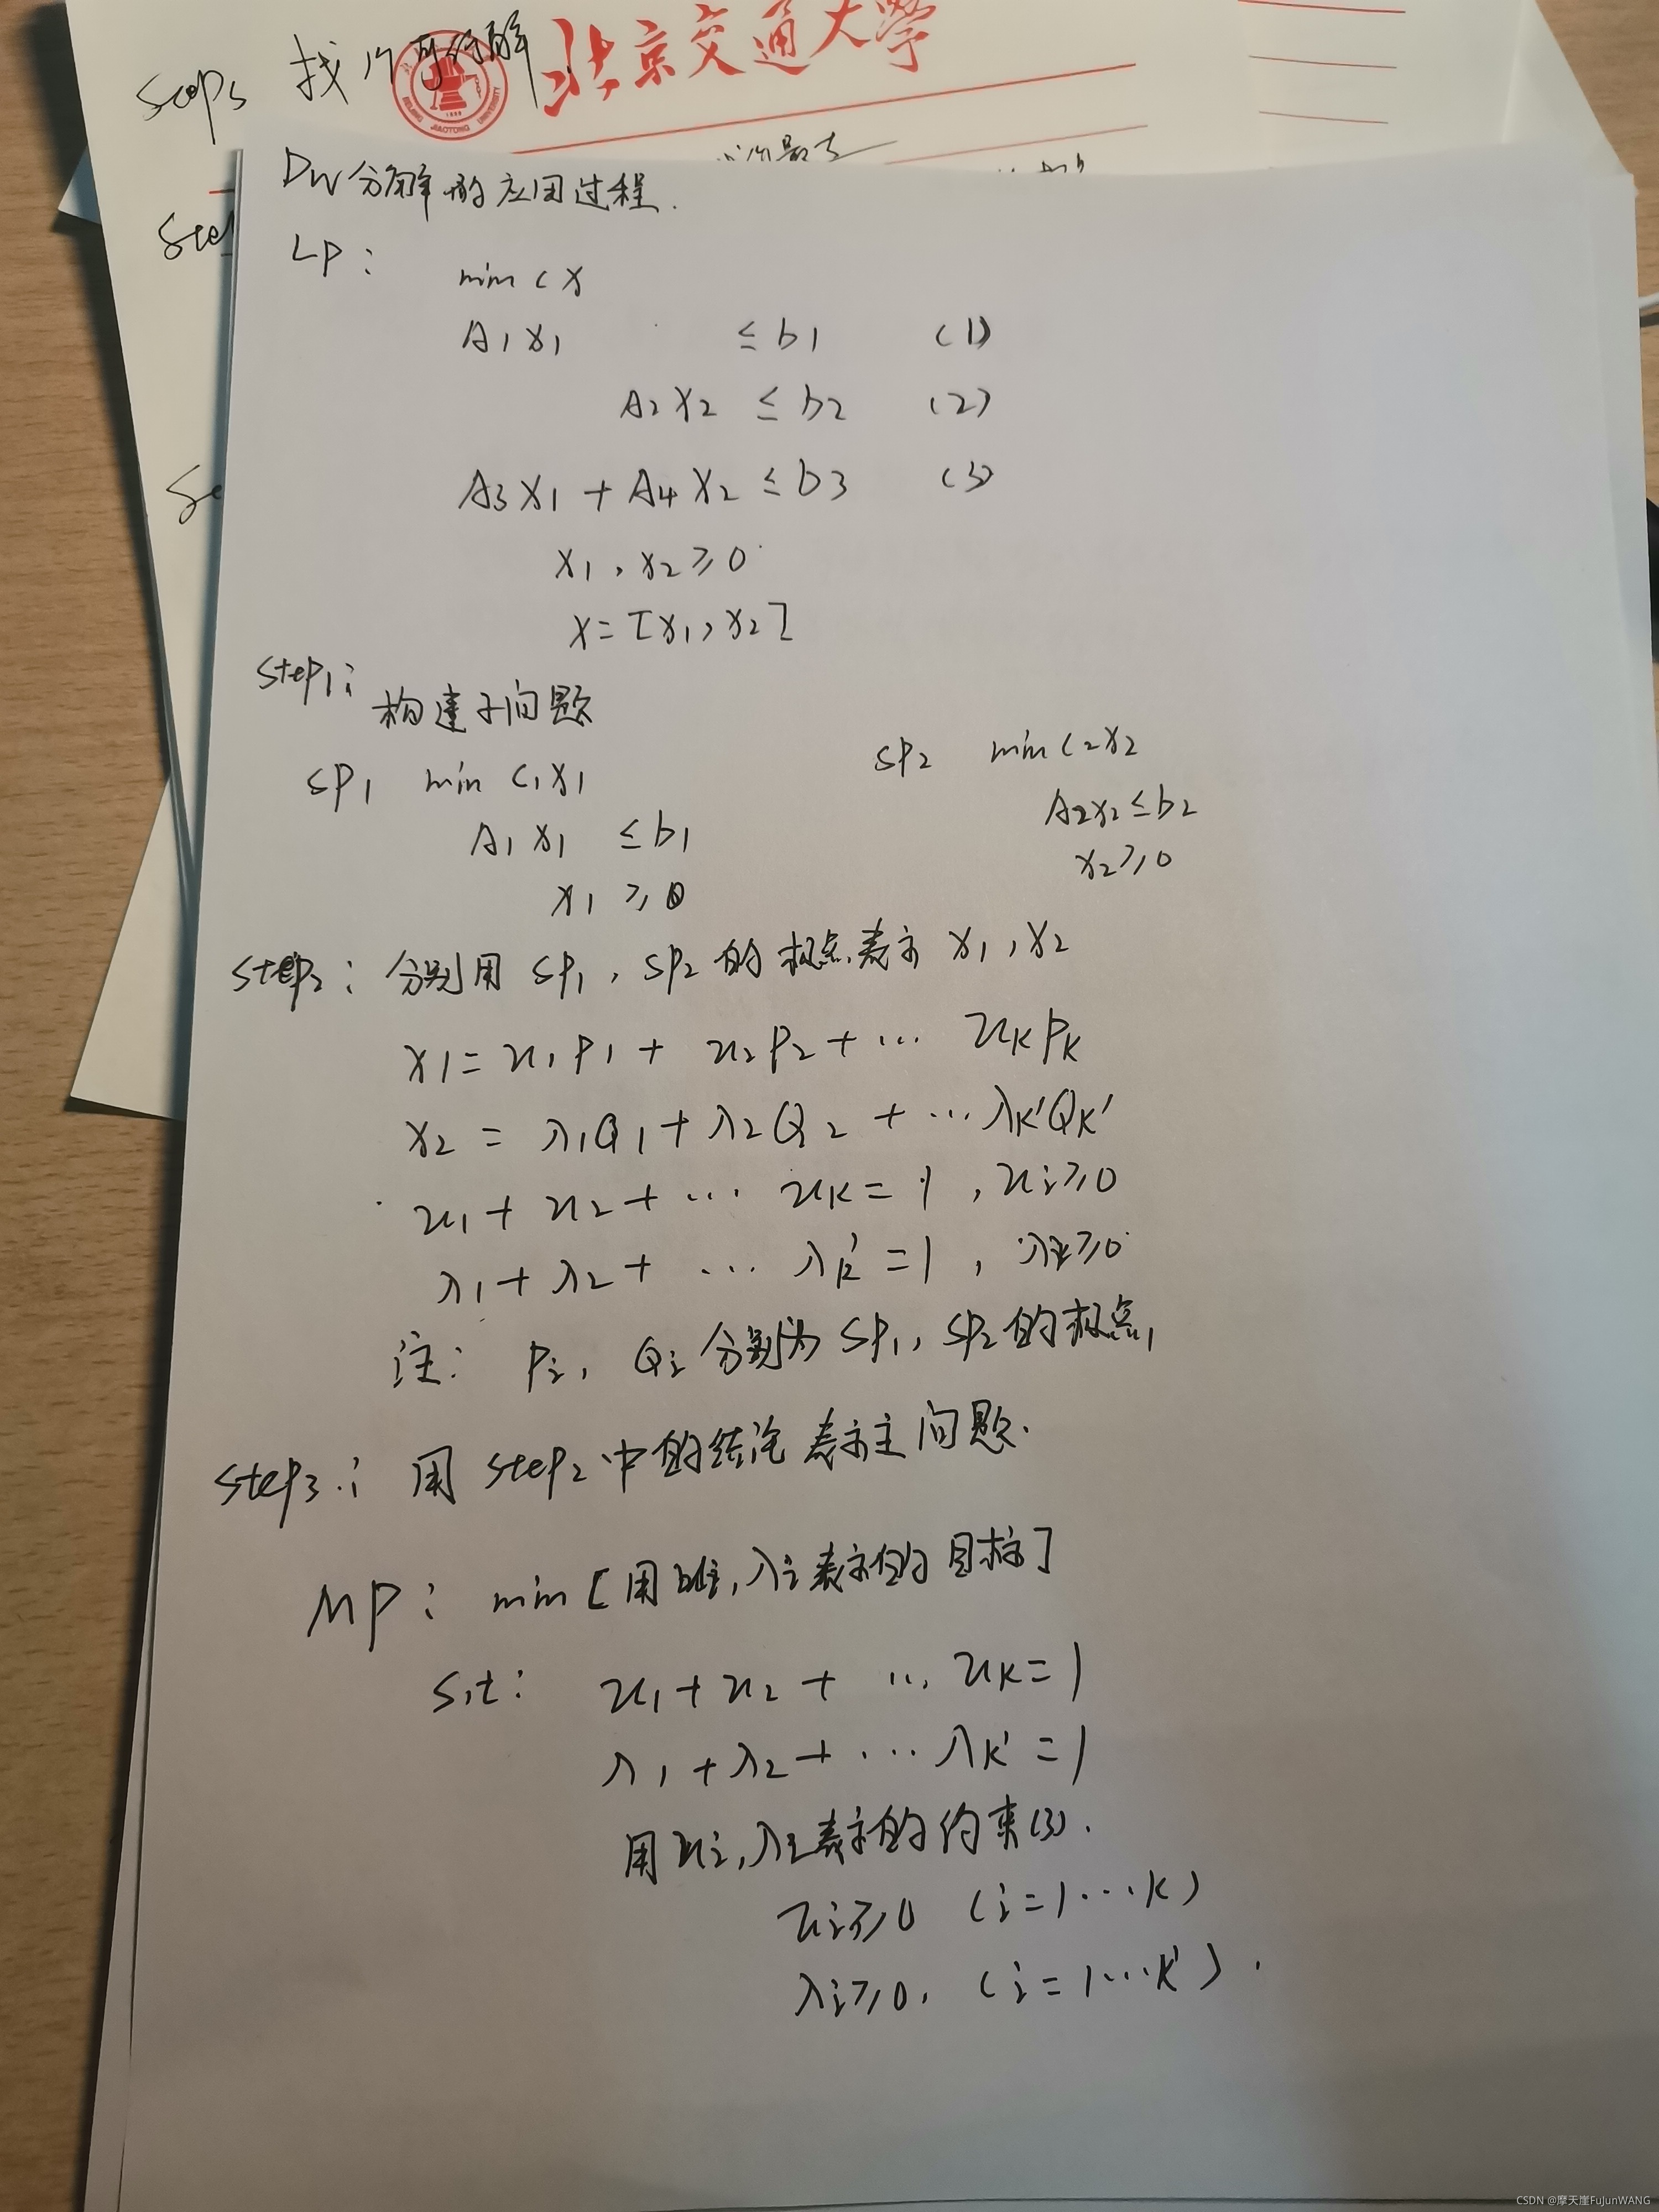 step5 找个可行解
北京交通大学
BEIJING JIAOTONG UNIVERSITY
DW分解的应用过程.
LP:
min cx
A1x1 ≤b1 (1)
A2x2 ≤b2 (2)
A3x1+A4x2≤b3 (3)
x1,x2≥0
x=[x1,x2]
step1:
构建子问题
SP1 min c1x1
A1x1 ≤b1
x1≥0
SP2 min c2x2
A2x2≤b2
x2≥0
step2: 分别用SP1,SP2的极点表示x1,x2
x1=u1P1+u2P2+…ukPk
x2=λ1Q1+λ2Q2+…λk'Qk'
u1+u2+…uk=1,ui≥0
λ1+λ2+…λk'=1,λi≥0
注: Pi, Qi分别为SP1,SP2的极点,
step3: 用step2中的结论表示主问题.
MP: min[用ui,λi表示的目标]
s,t: u1+u2+…uk=1
λ1+λ2+…λk'=1
用ui,λi表示的约束(3).
ui≥0 (i=1…k)
λi≥0. (i=1…k').
CSDN @摩天崖FuJunWANG